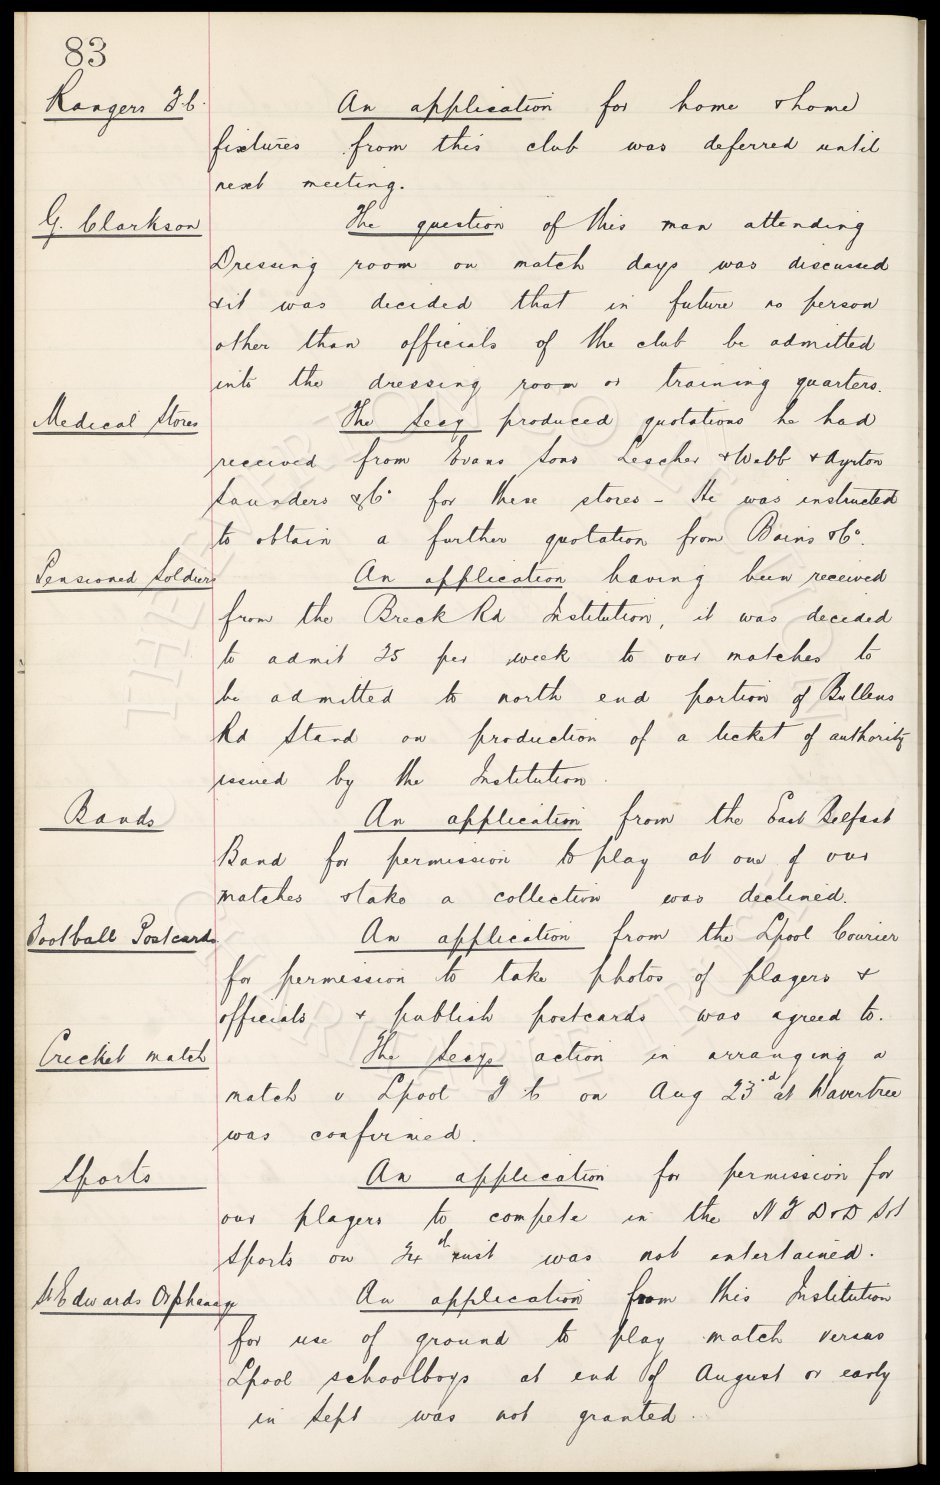 83
Rangers F.C. An application for home & home
fixtures from this club was deferred until
next meeting.
G. Clarkson The question of this man attending
Dressing room on match days was discussed
& it was decided that in future no person
other than officials of the club be admitted
into the dressing room or training quarters.
Medical Stores The Secy produced quotations he had
received from Evans Sons Lescher & Webb & Ayrton
Saunders & Co for these stores - He was instructed
to obtain a further quotation from Boins & Co.
Pensioned Soldiers An application having been received
from the Breck Rd Institution, it was decided
to admit 25 per week to our matches to
be admitted to north end portion of Bullens
Rd Stand on production of a ticket of authority
issued by the Institution.
Bands An application from the East Belfast
Band for permission to play at one of our
matches & take a collection was declined.
Football Postcards An application from the Lpool Courier
for permission to take photos of players &
officials & publish postcards was agreed to.
Cricket match The Secys action in arranging a
match v Lpool F C on Aug 23rd at Wavertree
was confirmed.
Sports An application for permission for
our players to compete in the N F D & D S & S
Sports on inst was not entertained.
St Edwards Orphanage An application from this Institution
for use of ground to play match versus
Lpool schoolboys at end of August or early
in Sept was not granted.
THE EVERTON FC